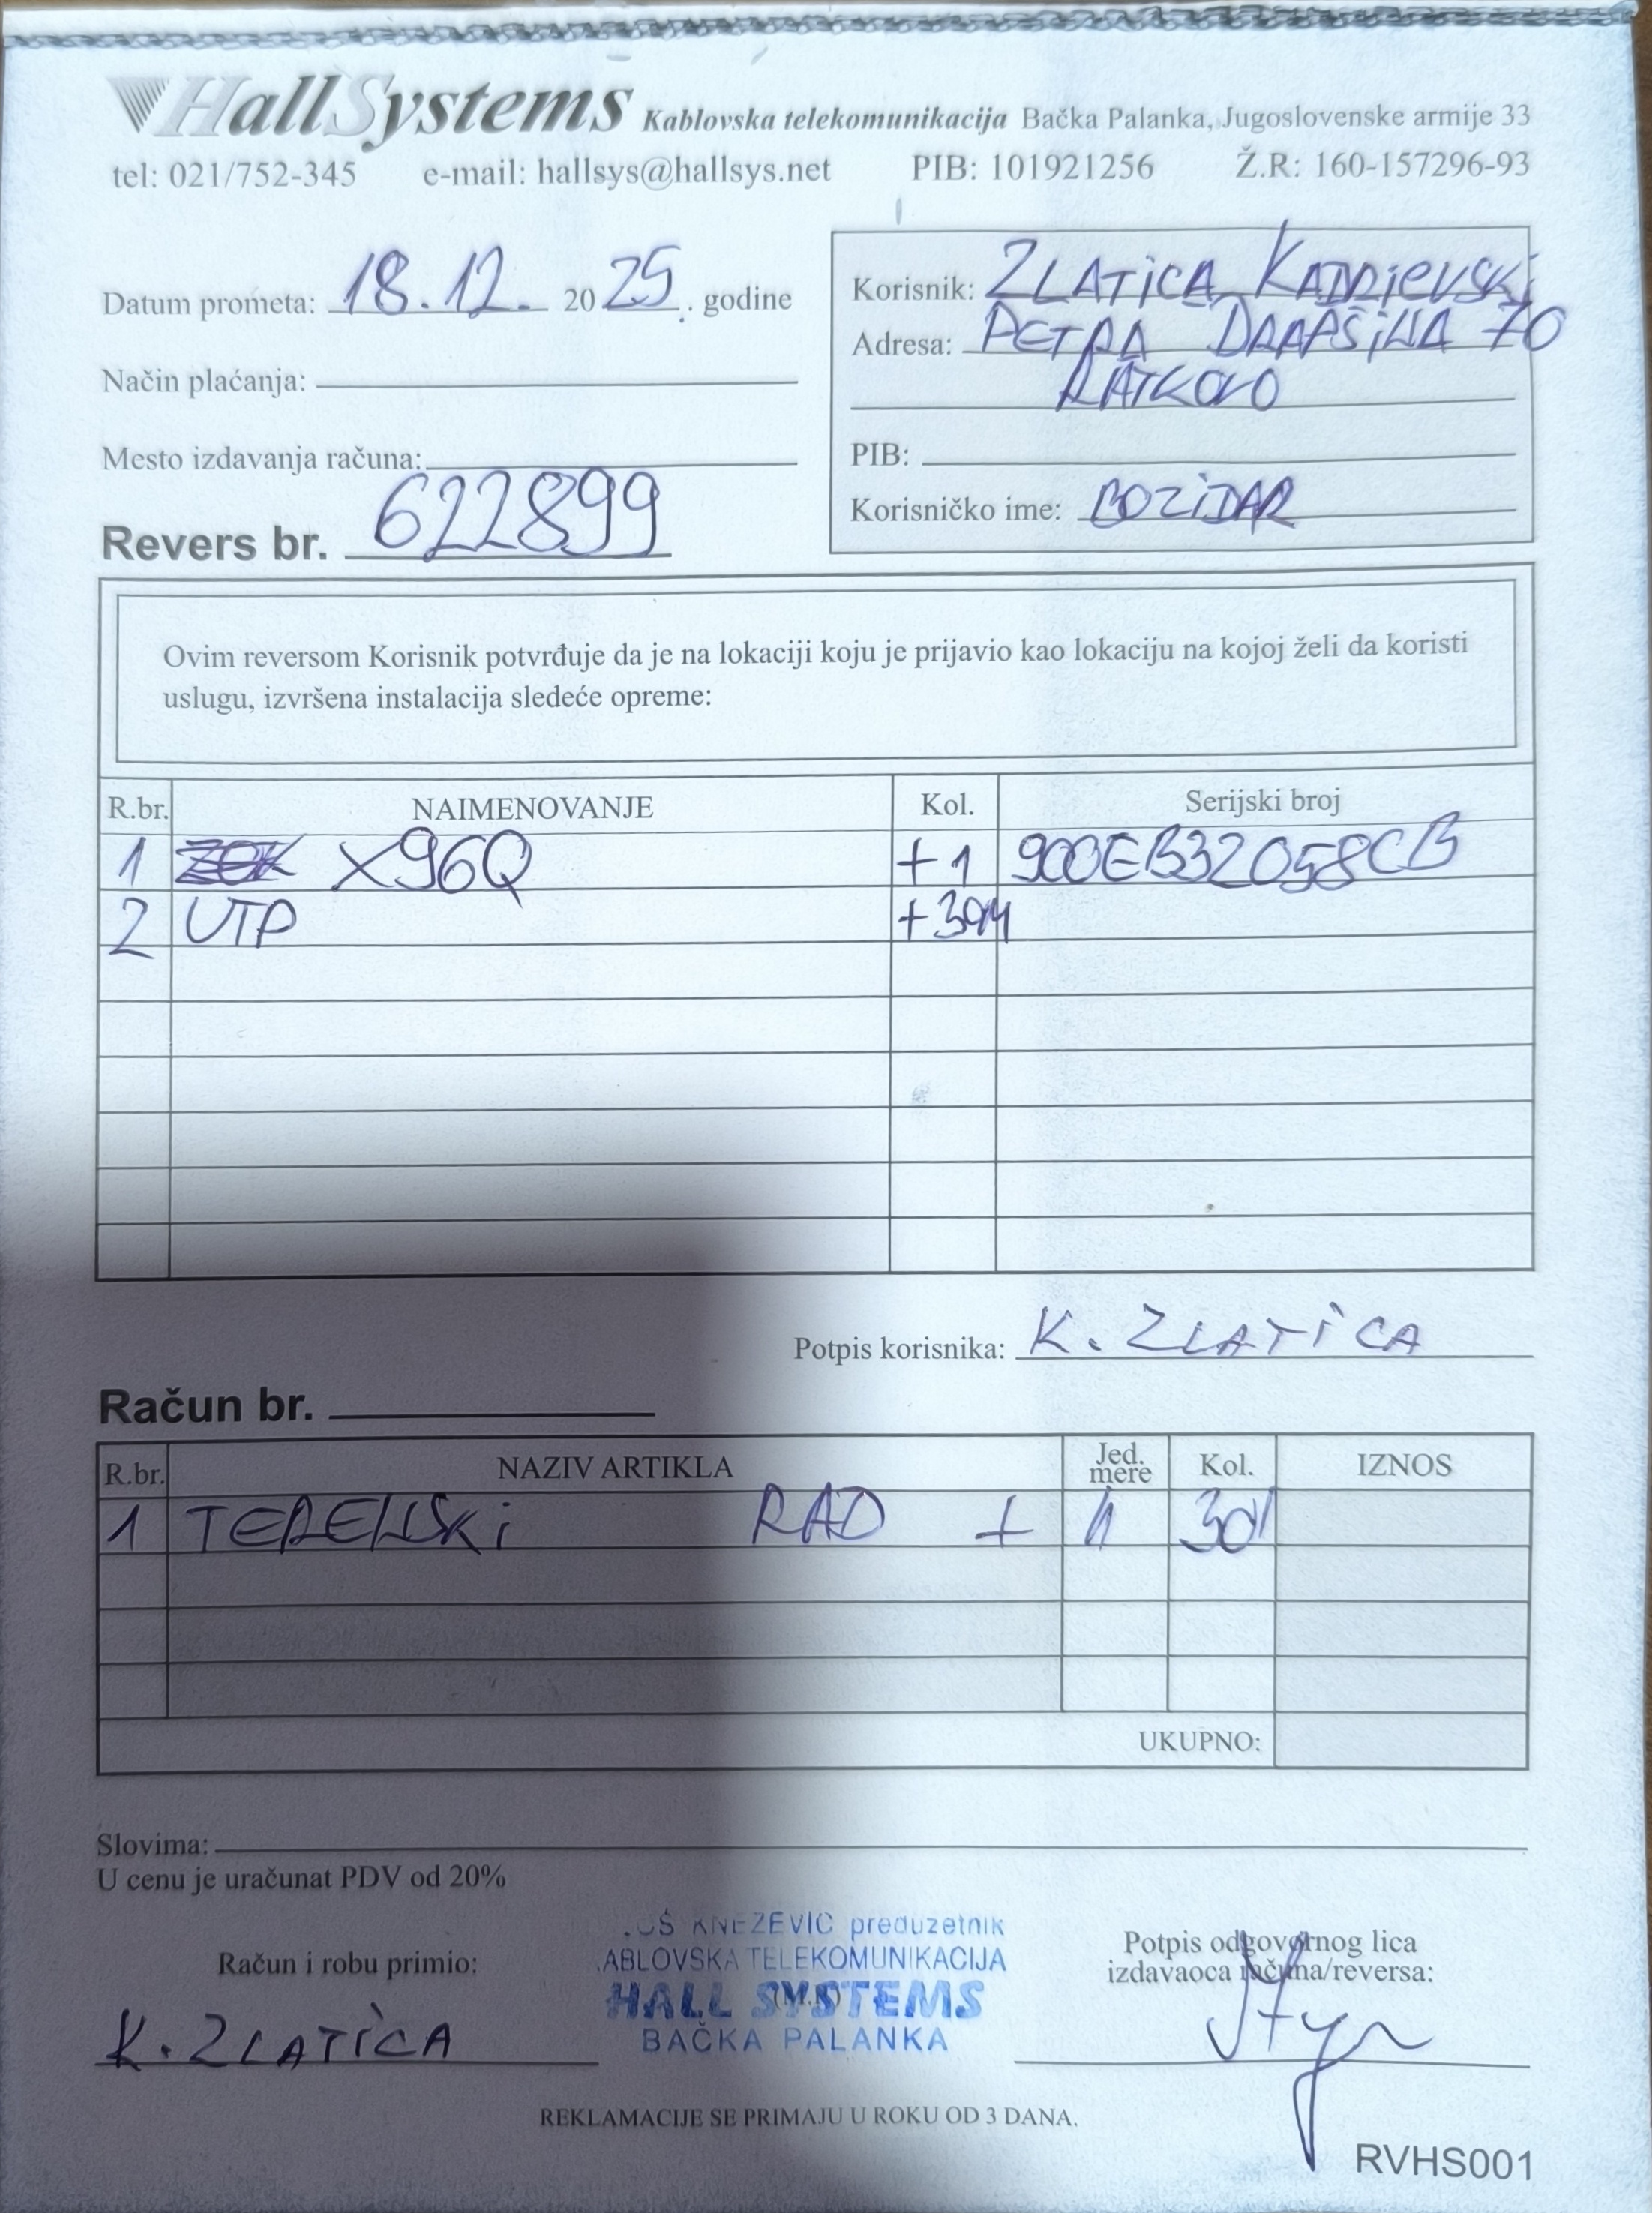 HallSystems Kablovska telekomunikacija Bačka Palanka, Jugoslovenske armije 33
tel: 021/752-345 e-mail: hallsys@hallsys.net PIB: 101921256 Ž.R: 160-157296-93
Datum prometa: 18.12. 2025. godine
Način plaćanja:
Mesto izdavanja računa:
Revers br. 622899
Korisnik: ZLATICA
Adresa: PETRA DRAPŠINA 70
RATKOVO
PIB:
Korisničko ime: BOZIDAR
Ovim reversom Korisnik potvrđuje da je na lokaciji koju je prijavio kao lokaciju na kojoj želi da koristi
uslugu, izvršena instalacija sledeće opreme:
R.br. NAIMENOVANJE Kol. Serijski broj
1 X96Q +1 900EB32058CB
2 UTP
Potpis korisnika: K. ZLATICA
Račun br.
R.br. NAZIV ARTIKLA Jed. mere Kol. IZNOS
1 TERENSKI RAD +
UKUPNO:
Slovima:
U cenu je uračunat PDV od 20%
Račun i robu primio:
K. ZLATICA
KNEZEVIC preduzetnik
ABLOVSKA TELEKOMUNIKACIJA
HALL SYSTEMS
(M.P.)
BAČKA PALANKA
Potpis odgovornog lica
izdavaoca računa/reversa:
REKLAMACIJE SE PRIMAJU U ROKU OD 3 DANA.
RVHS001